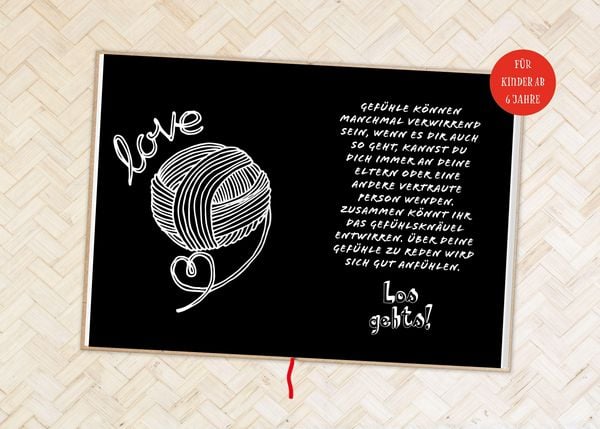 love
GEFÜHLE KÖNNEN
MANCHMAL VERWIRREND
SEIN, WENN ES DIR AUCH
SO GEHT, KANNST DU
DICH IMMER AN DEINE
ELTERN ODER EINE
ANDERE VERTRAUTE
PERSON WENDEN.
ZUSAMMEN KÖNNT IHR
DAS GEFÜHLSKNÄUEL
ENTWIRREN. ÜBER DEINE
GEFÜHLE ZU REDEN WIRD
SICH GUT ANFÜHLEN.
Los
gehts!
FÜR
KINDER AB
6 JAHRE